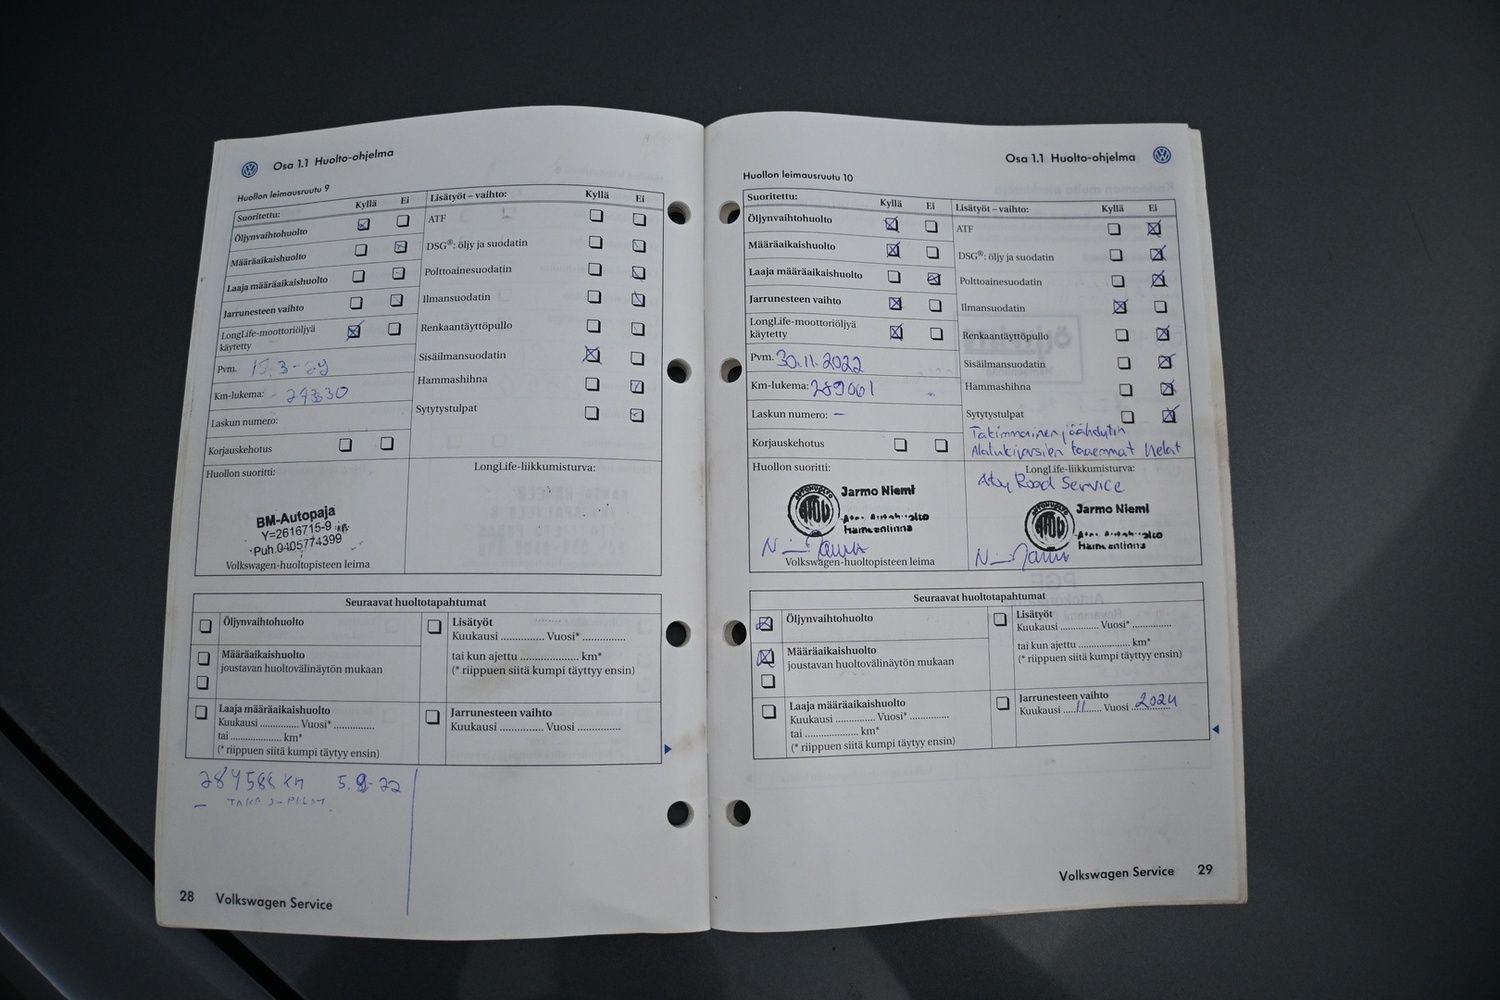 Osa 1.1 Huolto-ohjelma
Huollon leimausruutu 9
Suoritettu: Kyllä Ei
Öljynvaihtohuolto
Määräaikaishuolto
Laaja määräaikaishuolto
Jarrunesteen vaihto
LongLife-moottoriöljyä
käytetty
Pvm.
Km-lukema:
Laskun numero:
Korjauskehotus
Huollon suoritti:
BM-Autopaja
Y=2616715-9
Puh.0405774399
Volkswagen-huoltopisteen leima
Lisätyöt – vaihto: Kyllä Ei
ATF
DSG®: öljy ja suodatin
Polttoainesuodatin
Ilmansuodatin
Renkaantäyttöpullo
Sisäilmansuodatin
Hammashihna
Sytytystulpat
LongLife-liikkumisturva:
Seuraavat huoltotapahtumat
Öljynvaihtohuolto
Määräaikaishuolto
joustavan huoltovälinäytön mukaan
Laaja määräaikaishuolto
Kuukausi .............. Vuosi* ...............
tai ..................... km*
(* riippuen siitä kumpi täytyy ensin)
Lisätyöt
Kuukausi ............... Vuosi* ...............
tai kun ajettu ..................... km*
(* riippuen siitä kumpi täyttyy ensin)
Jarrunesteen vaihto
Kuukausi ............... Vuosi ...............
284588 km
28 Volkswagen Service
Osa 1.1 Huolto-ohjelma
Huollon leimausruutu 10
Suoritettu: Kyllä Ei
Öljynvaihtohuolto
Määräaikaishuolto
Laaja määräaikaishuolto
Jarrunesteen vaihto
LongLife-moottoriöljyä
käytetty
Pvm. 30.11.2022
Km-lukema: 289061
Laskun numero: –
Korjauskehotus
Huollon suoritti:
Jarmo Niemi
Hämeenlinna
Volkswagen-huoltopisteen leima
Lisätyöt – vaihto: Kyllä Ei
ATF
DSG®: öljy ja suodatin
Polttoainesuodatin
Ilmansuodatin
Renkaantäyttöpullo
Sisäilmansuodatin
Hammashihna
Sytytystulpat
Takimmainen jäähdytin
Alatukivarsien taaemmat helat
LongLife-liikkumisturva:
Road Service
Jarmo Niemi
Hämeenlinna
Seuraavat huoltotapahtumat
Öljynvaihtohuolto
Määräaikaishuolto
joustavan huoltovälinäytön mukaan
Laaja määräaikaishuolto
Kuukausi .............. Vuosi* ...............
tai ..................... km*
(* riippuen siitä kumpi täytyy ensin)
Lisätyöt
Kuukausi ............... Vuosi* ...............
tai kun ajettu ..................... km*
(* riippuen siitä kumpi täyttyy ensin)
Jarrunesteen vaihto
Kuukausi 11 Vuosi 2024
Volkswagen Service 29